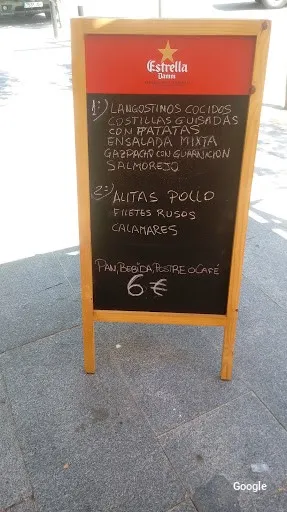 Estrella
Damm
1:) LANGOSTINOS COCIDOS
COSTILLAS GUISADAS
CON PATATAS
ENSALADA MIXTA
GAZPACHO CON GUARNICION
SALMOREJO
2:) ALITAS POLLO
FILETES RUSOS
CALAMARES
PAN, BEBIDA, POSTRE O CAFÉ
6 €
Google